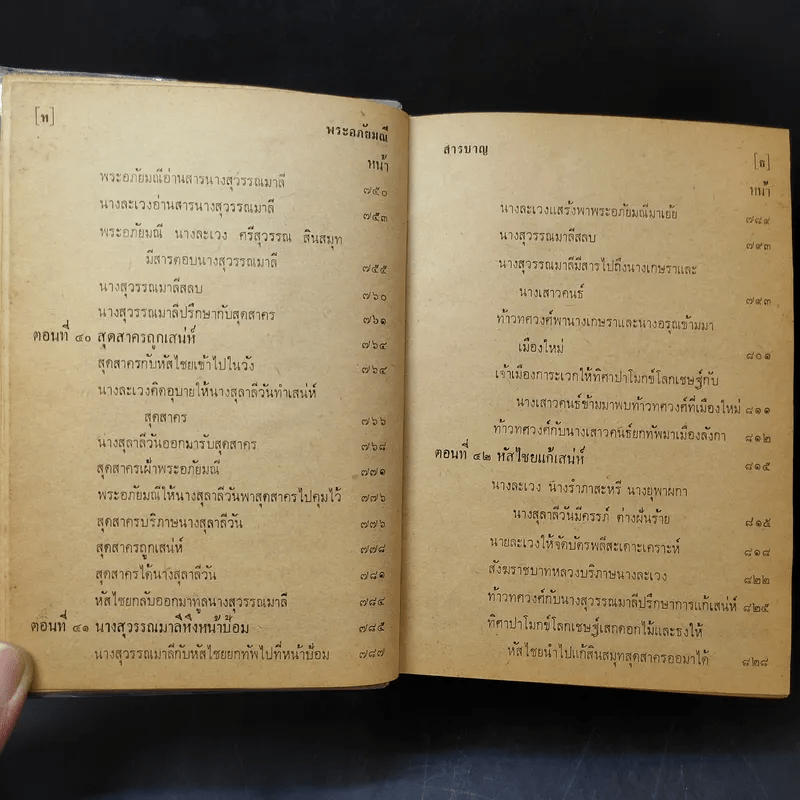 [ท]
พระอภัยมณี
หน้า
พระอภัยมณีอ่านสารนางสุวรรณมาลี ๗๕๐
นางละเวงอ่านสารนางสุวรรณมาลี ๗๕๓
พระอภัยมณี นางละเวง ศรีสุวรรณ สินสมุท
มีสารตอบนางสุวรรณมาลี ๗๕๕
นางสุวรรณมาลีสลบ ๗๖๐
นางสุวรรณมาลีปรึกษากับสุดสาคร ๗๖๑
ตอนที่ ๔๐ สุดสาครถูกเสน่ห์ ๗๖๔
สุดสาครกับหัสไชยเข้าไปในวัง ๗๖๔
นางละเวงคิดอุบายให้นางสุลาลีวันทำเสน่ห์
สุดสาคร ๗๖๖
นางสุลาลีวันออกมารับสุดสาคร ๗๖๘
สุดสาครเฝ้าพระอภัยมณี ๗๗๑
พระอภัยมณีให้นางสุลาลีวันพาสุดสาครไปคุมไว้ ๗๗๖
สุดสาครบริภาษนางสุลาลีวัน ๗๗๖
สุดสาครถูกเสน่ห์ ๗๗๘
สุดสาครได้นางสุลาลีวัน ๗๘๑
หัสไชยกลับออกมาทูลนางสุวรรณมาลี ๗๘๔
ตอนที่ ๔๑ นางสุวรรณมาลีหึงหน้าป้อม ๗๘๕
นางสุวรรณมาลีกับหัสไชยยกทัพไปที่หน้าป้อม ๗๘๗
สารบาญ
หน้า
นางละเวงแสร้งพาพระอภัยมณีมาเย้ย ๗๘๙
นางสุวรรณมาลีสลบ ๗๙๓
นางสุวรรณมาลีมีสารไปถึงนางเกษราและ
นางเสาวคนธ์ ๗๙๓
ท้าวทศวงศ์พานางเกษราและนางอรุณข้ามมา
เมืองใหม่ ๘๐๑
เจ้าเมืองการะเวกให้ทิศาปาโมกข์โลกเชษฐ์กับ
นางเสาวคนธ์ข้ามมาพบท้าวทศวงศ์ที่เมืองใหม่ ๘๑๑
ท้าวทศวงศ์กับนางเสาวคนธ์ยกทัพมาเมืองลังกา ๘๑๒
ตอนที่ ๔๒ หัสไชยแก้เสน่ห์ ๘๑๕
นางละเวง นางรำภาสะหรี นางยุพาผกา
นางสุลาลีวันมีครรภ์ ต่างฝันร้าย ๘๑๕
นายละเวงให้จัดบัตรพลีสะเดาะเคราะห์ ๘๑๘
สังฆราชบาทหลวงบริภาษนางละเวง ๘๒๒
ท้าวทศวงศ์กับนางสุวรรณมาลีปรึกษาการแก้เสน่ห์ ๘๒๕
ทิศาปาโมกข์โลกเชษฐ์เสกดอกไม้และธงให้
หัสไชยนำไปแก้สินสมุทสุดสาครออมาได้ ๘๒๘